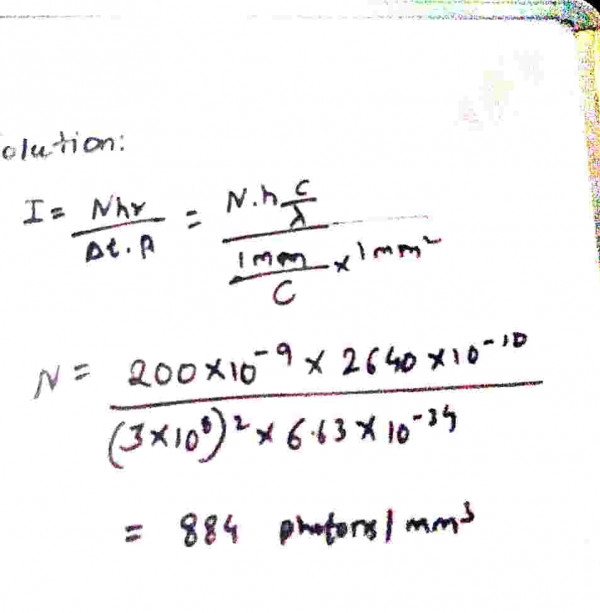 olution:
I = Nhν / Δt.A = N.h c/λ / 1mm/C × 1mm²
N = 200×10⁻⁹ × 2640 ×10⁻¹⁰ / (3×10⁸)² × 6.63 × 10⁻³⁴
= 884 photons / mm³